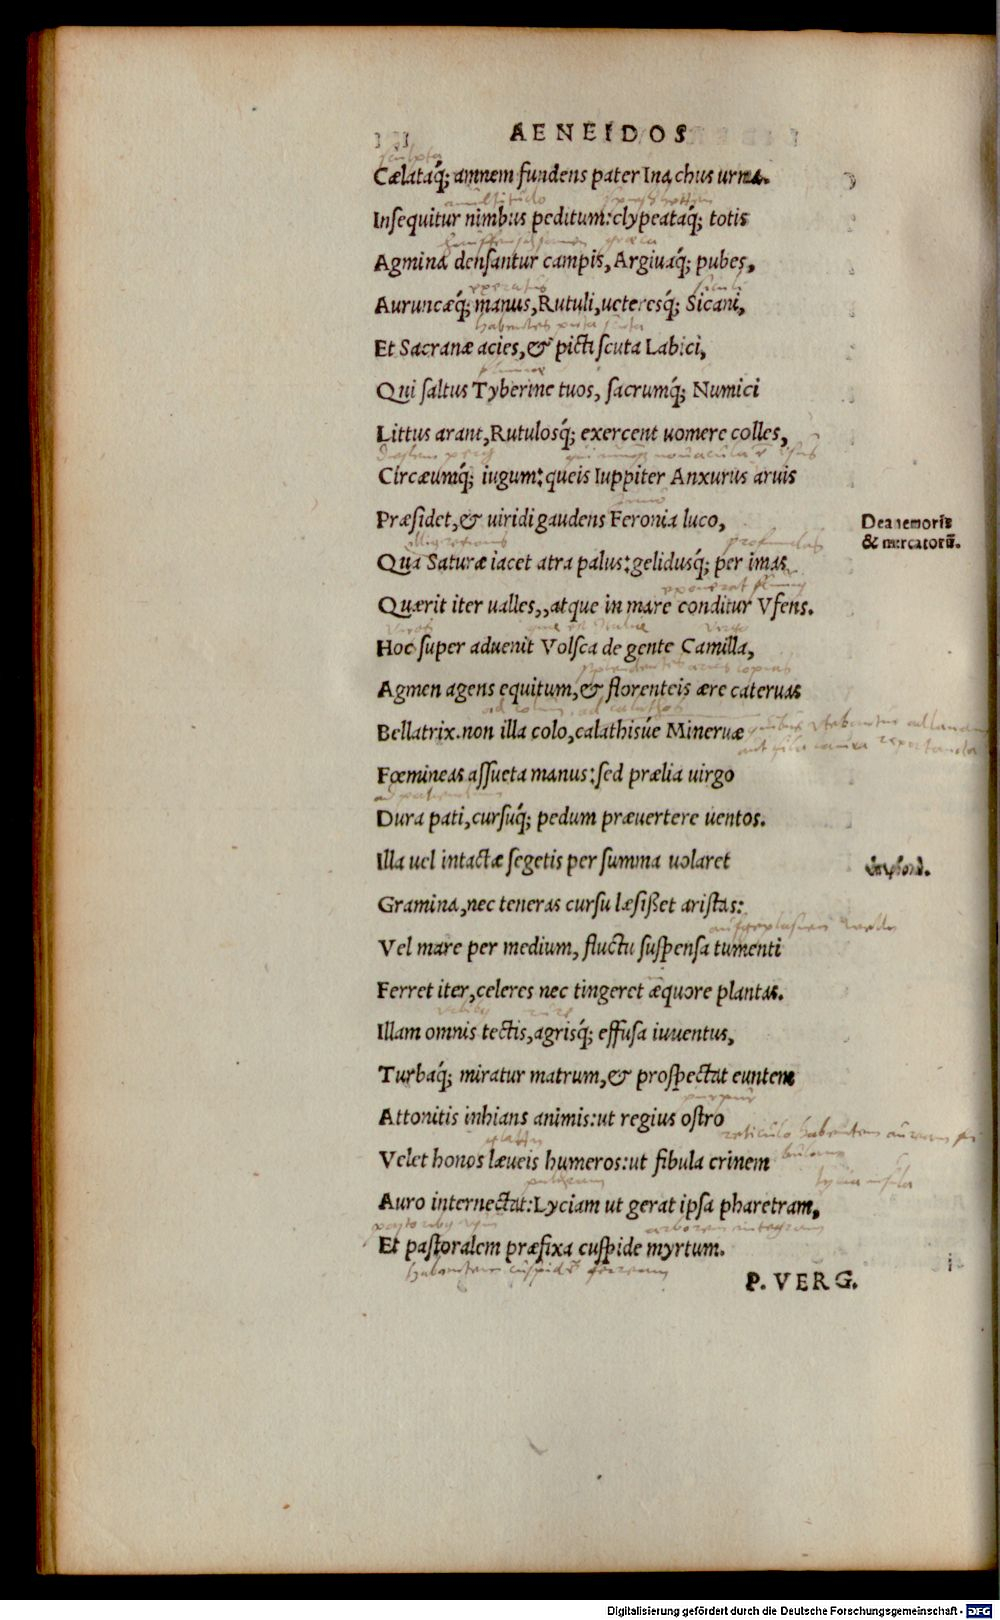 AENEIDOS
sculpta
Cælataq́; amnem fundens pater Inachus urna.
multitudo
Insequitur nimbus peditum: clypeataq́; totis
græca
Agmina densantur campis, Argiuaq́; pubes,
siculi
Auruncæq́; manus, Rutuli, ueteresq́; Sicani,
habentes picta scuta
Et Sacranæ acies, & picti scuta Labici,
Qui saltus Tyberine tuos, sacrumq́; Numici
Littus arant, Rutulosq́; exercent uomere colles,
Circæumq́; iugum: queis Iuppiter Anxurus aruis
Præsidet, & uiridi gaudens Feronia luco,
Dea nemoris
& mercatorū.
profundas
Qua Saturæ iacet atra palus: gelidusq́; per imas
Quærit iter ualles,, atque in mare conditur Vfens.
virgo
Hoc super aduenit Volsca de gente Camilla,
splendentes copias
Agmen agens equitum, & florenteis ære cateruas
ad calathos
Bellatrix. non illa colo, calathisúe Mineruæ
quibus
Fœmineas assueta manus: sed prælia uirgo
ad patiendum
Dura pati, cursuq́; pedum præuertere uentos.
Illa uel intactæ segetis per summa uolaret
Gramina, nec teneras cursu læsißet aristas:
Vel mare per medium, fluctu suspensa tumenti
Ferret iter, celeres nec tingeret æquore plantas.
Illam omnis tectis, agrisq́; effusa iuuentus,
Turbaq́; miratur matrum, & prospectat euntem
Attonitis inhians animis: ut regius ostro
reticulo habentem auream
Velet honos læueis humeros: ut fibula crinem
Auro internectat: Lyciam ut gerat ipsa pharetram,
arborem
Et pastoralem præfixa cuspide myrtum.
habentem cuspidē ferream
P. VERG.
Digitalisierung gefördert durch die Deutsche Forschungsgemeinschaft - DFG